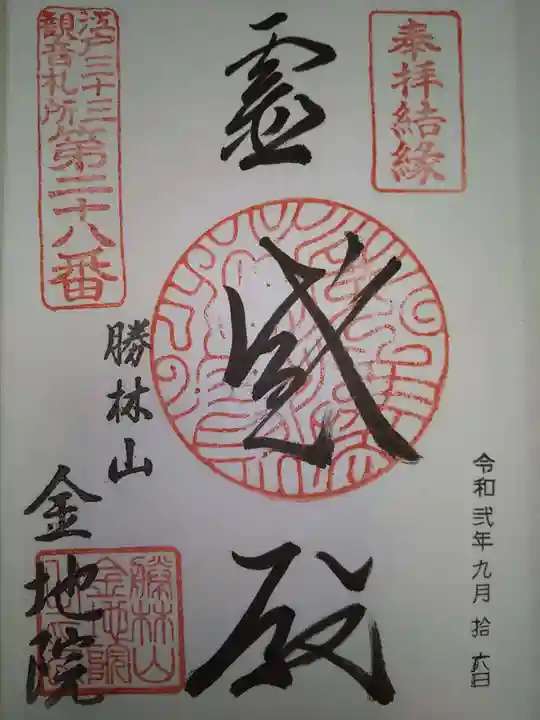 奉拝結縁
霊感殿
江戸三十三
観音札所
第二十八番
勝林山
金地院
令和弐年九月拾六日
勝林山
金地院